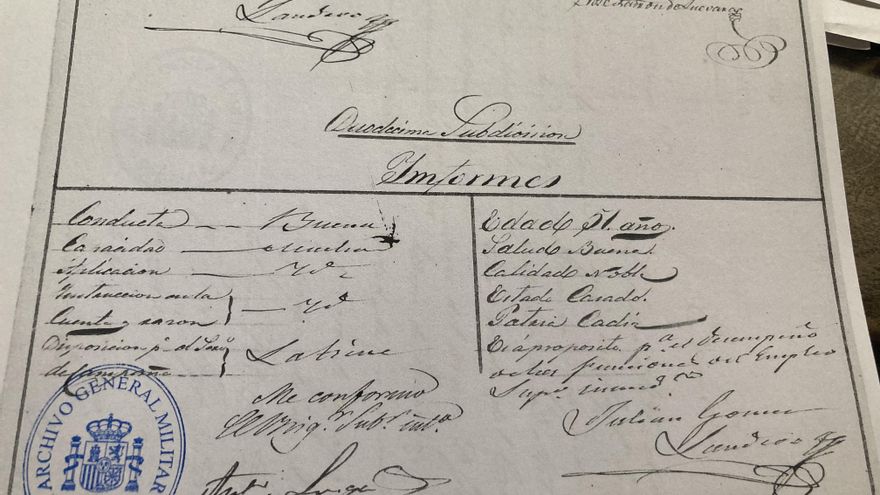 Landero
Duodecima Subdivision
Informes
Conducta -- Buena
Capacidad — mucha
Aplicacion — Yd.
Instruccion en la
Cuenta y razon — Yd.
Disposicion pª el Serv.º
de Campaña
La tiene
Me conformo
Edad 51. año.
Salud Buena.
Calidad Noble
Estado Casado.
Patria Cadiz
Es áproposito pª el desempeño
de las funciones del Empleo
Supr. inmedto
Julian Gomez
Landero
ARCHIVO GENERAL MILITAR